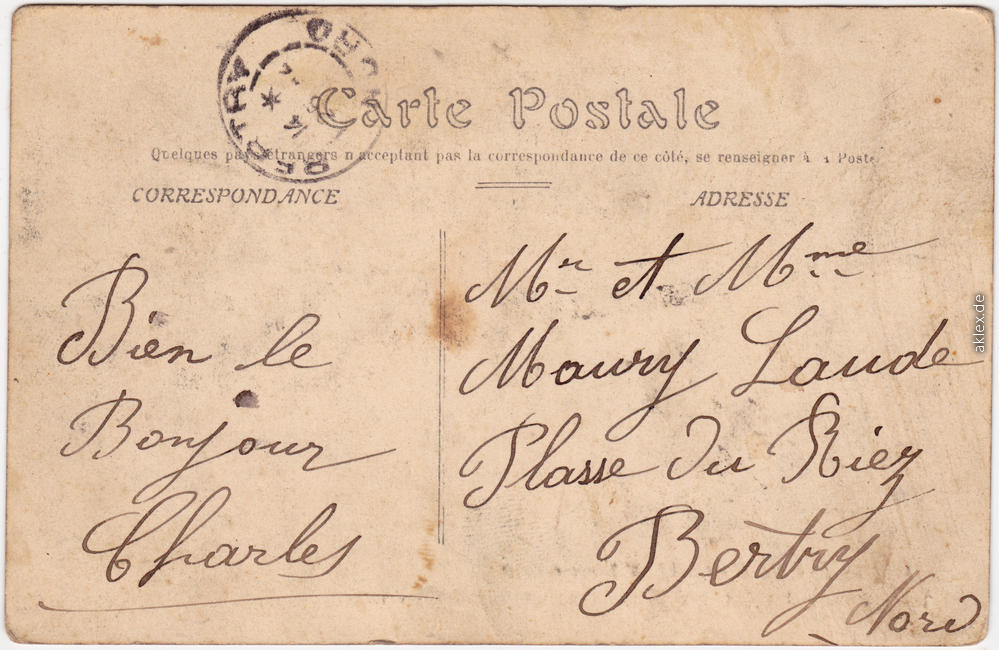 BERTRY NORD
Carte Postale
Quelques pays étrangers n'acceptant pas la correspondance de ce côté, se renseigner à la Poste
CORRESPONDANCE
ADRESSE
Bien le
Bonjour
Charles
Mr et Mme
Maury Laude
Plasse du Riez
Bertry
Nord
aklex.de